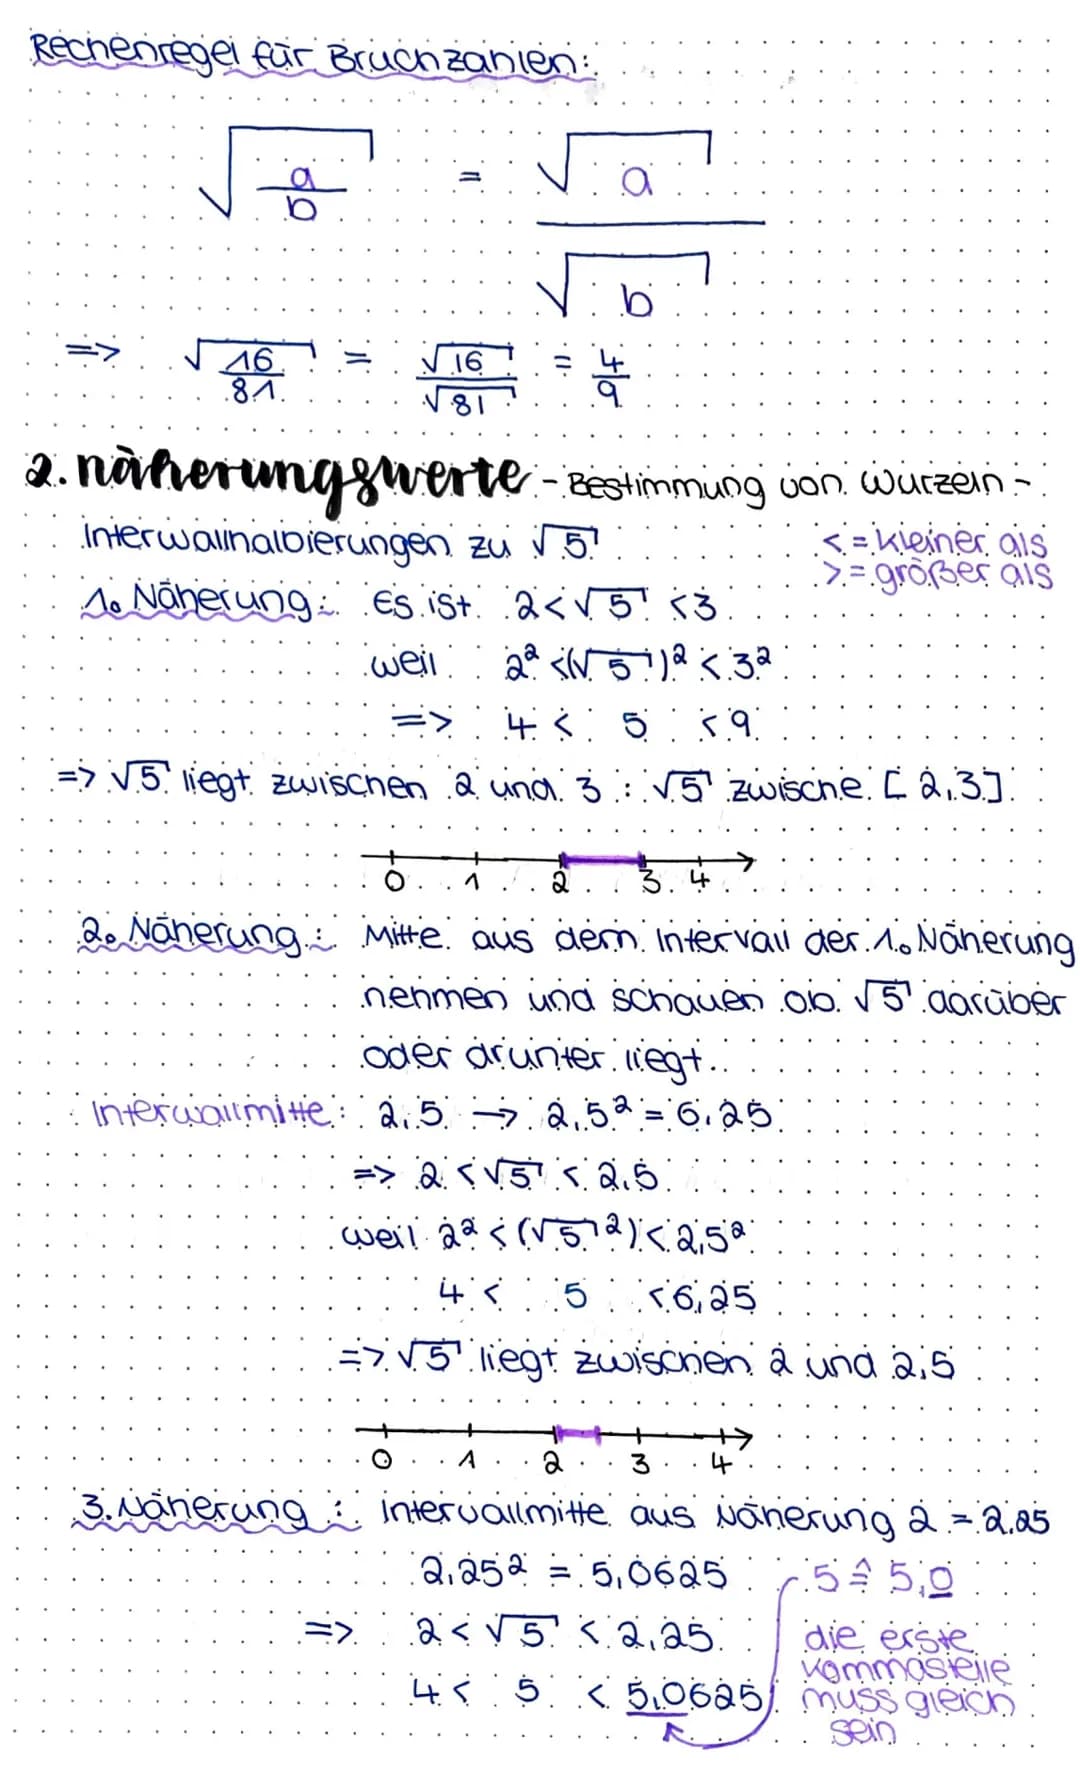 Rechenregel für Bruchzahlen:
√(a/b) = √a / √b
=> √(16/81) = √16 / √81 = 4/9
2. näherungswerte - Bestimmung von Wurzeln -
Interwallhalbierungen zu √5
< = kleiner als
> = größer als
1. Näherung: Es ist 2 < √5 < 3
weil 2² < (√5)² < 3²
=> 4 < 5 < 9
=> √5 liegt zwischen 2 und 3 : √5 zwische [2,3]
0 1 2 3 4
2. Näherung: Mitte aus dem Intervall der 1. Näherung
nehmen und schauen ob √5 darüber
oder drunter liegt.
Interwallmitte: 2,5 → 2,5² = 6,25
=> 2 < √5 < 2,5
weil 2² < (√5²) < 2,5²
4 < 5 < 6,25
=> √5 liegt zwischen 2 und 2,5
0 1 2 3 4
3. Näherung: Intervallmitte aus Näherung 2 = 2,25
2,25² = 5,0625
5 ≙ 5,0
=> 2 < √5 < 2,25
die erste
Kommastelle
4 < 5 < 5,0625
muss gleich
sein